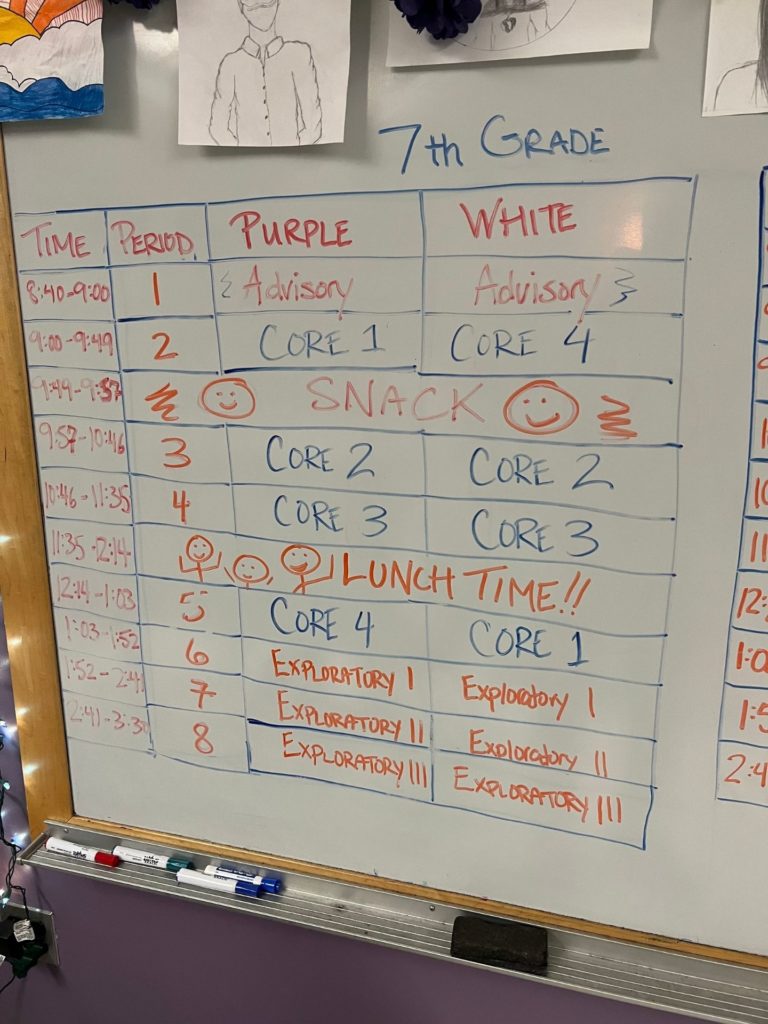 7th GRADE
TIME PERIOD PURPLE WHITE
8:40-9:00 1 Advisory Advisory
9:00-9:49 2 CORE 1 CORE 4
9:49-9:57 SNACK
9:57-10:46 3 CORE 2 CORE 2
10:46-11:35 4 CORE 3 CORE 3
11:35-12:14 LUNCH TIME!!
12:14-1:03 5 CORE 4 CORE 1
1:03-1:52 6 EXPLORATORY I Exploratory I
1:52-2:41 7 EXPLORATORY II Exploratory II
2:41-3:30 8 EXPLORATORY III EXPLORATORY III